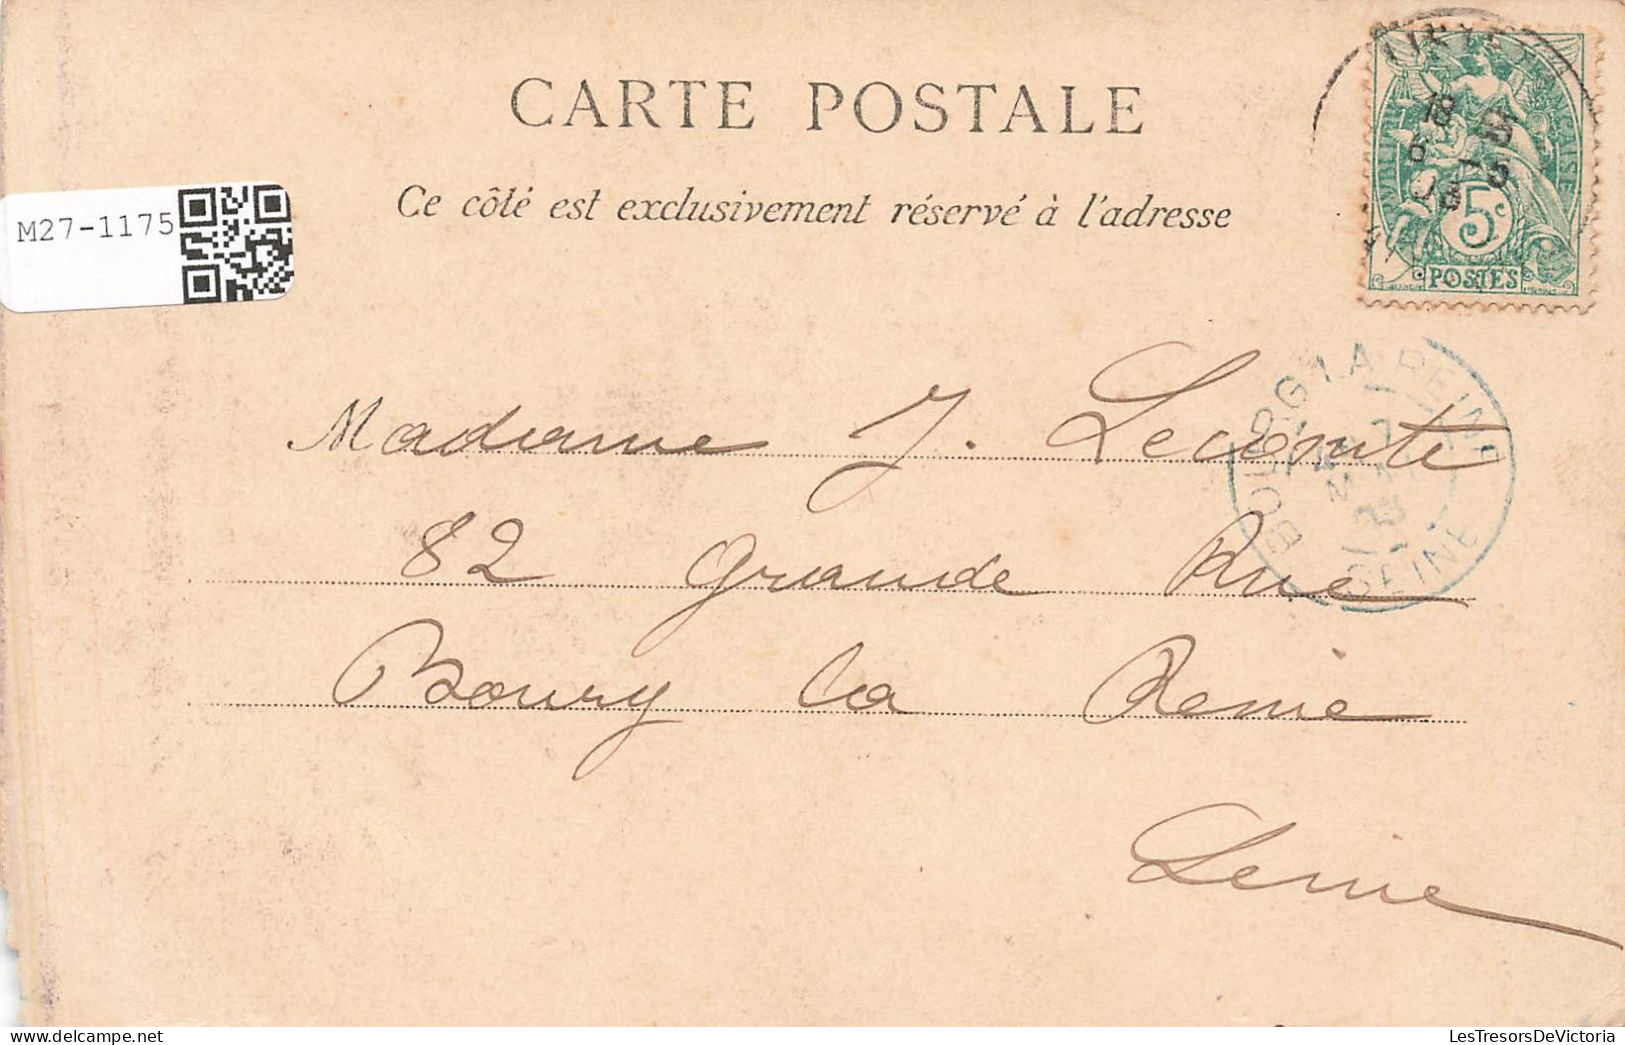 CARTE POSTALE
Ce côté est exclusivement réservé à l'adresse
M27-1175
5c
POSTES
BOURG LA REINE
SEINE
Madame J. Lecomte
82 grande Rue
Bourg la Reine
Seine
LesTresorsDeVictoria